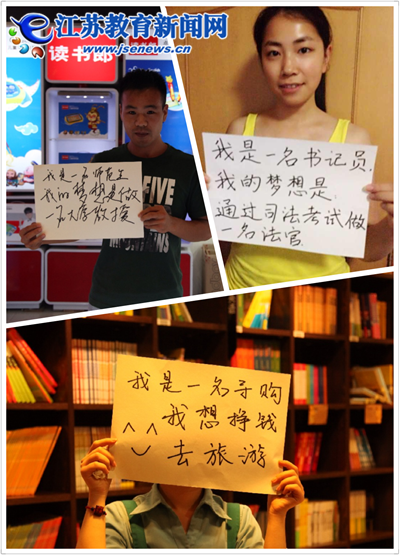 江苏教育新闻网
www.jsenews.cn
读书郎
我是一名师范生
我的梦想是做
一名大学教授
我是一名书记员,
我的梦想是
通过司法考试做
一名法官
我是一名导购
我想挣钱
去旅游